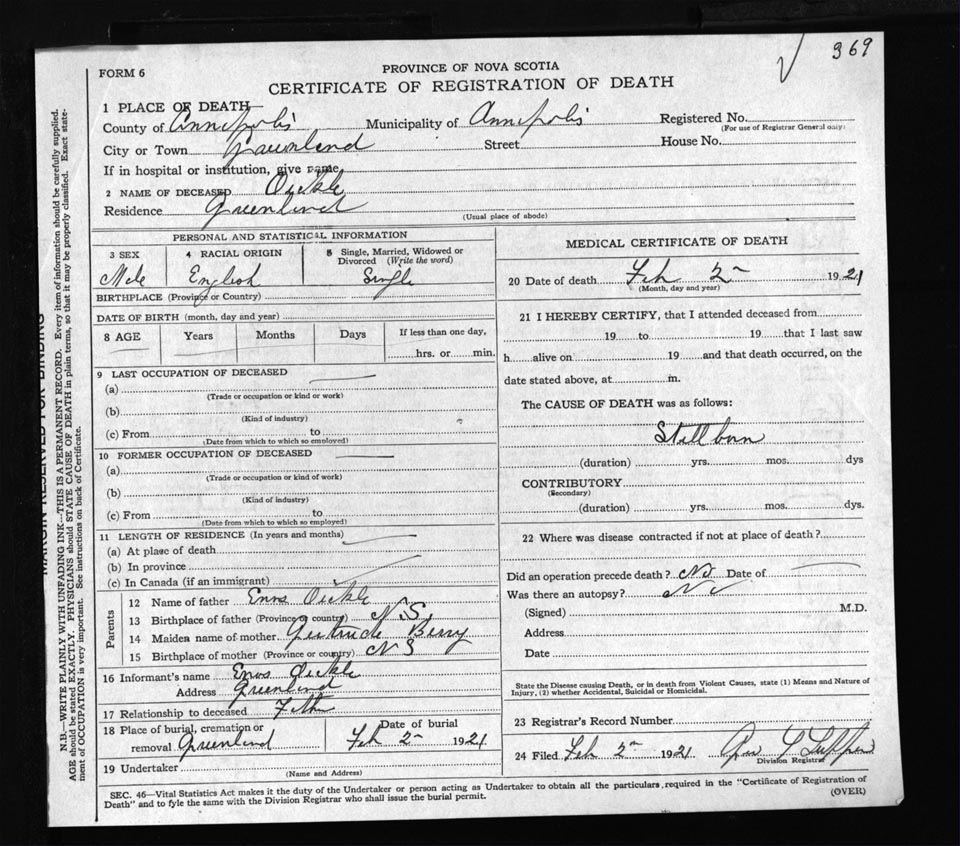 369
FORM 6
PROVINCE OF NOVA SCOTIA
CERTIFICATE OF REGISTRATION OF DEATH
1 PLACE OF DEATH—
County of Annapolis Municipality of Annapolis Registered No.
(For use of Registrar General only)
City or Town Greenland Street House No.
If in hospital or institution, give name
2 NAME OF DECEASED Oickle
Residence Greenland
(Usual place of abode)
PERSONAL AND STATISTICAL INFORMATION
3 SEX 4 RACIAL ORIGIN 5 Single, Married, Widowed or Divorced (Write the word)
Male English Single
BIRTHPLACE (Province or Country)
DATE OF BIRTH (month, day and year)
8 AGE Years Months Days If less than one day,
hrs. or min.
9 LAST OCCUPATION OF DECEASED
(a)
(Trade or occupation or kind or work)
(b)
(Kind of industry)
(c) From to
(Date from which to which so employed)
10 FORMER OCCUPATION OF DECEASED
(a)
(Trade or occupation or kind of work)
(b)
(Kind of industry)
(c) From to
(Date from which to which so employed)
11 LENGTH OF RESIDENCE (In years and months)
(a) At place of death
(b) In province
(c) In Canada (if an immigrant)
Parents
12 Name of father Enos Oickle
13 Birthplace of father (Province or country) N.S.
14 Maiden name of mother Gertrude Berry
15 Birthplace of mother (Province or country) N S
16 Informant's name Enos Oickle
Address Greenland
17 Relationship to deceased Father
18 Place of burial, cremation or removal Greenland
Date of burial
Feb 2 1921
19 Undertaker
(Name and Address)
MEDICAL CERTIFICATE OF DEATH
20 Date of death Feb 2 1921
(Month, day and year)
21 I HEREBY CERTIFY, that I attended deceased from
19 to 19 that I last saw
h alive on 19 and that death occurred, on the
date stated above, at m.
The CAUSE OF DEATH was as follows:
Stillborn
(duration) yrs. mos. dys
CONTRIBUTORY
(Secondary)
(duration) yrs. mos. dys.
22 Where was disease contracted if not at place of death?
Did an operation precede death? No Date of
Was there an autopsy? No
(Signed) M.D.
Address
Date
State the Disease causing Death, or in death from Violent Causes, state (1) Means and Nature of
Injury, (2) whether Accidental, Suicidal or Homicidal.
23 Registrar's Record Number
24 Filed Feb 2 1921
Division Registrar
SEC. 46—Vital Statistics Act makes it the duty of the Undertaker or person acting as Undertaker to obtain all the particulars required in the "Certificate of Registration of
Death" and to fyle the same with the Division Registrar who shall issue the burial permit.
(OVER)
MARGIN RESERVED FOR BINDING
N.B.—WRITE PLAINLY WITH UNFADING INK—THIS IS A PERMANENT RECORD. Every item of information should be carefully supplied.
AGE should be stated EXACTLY. PHYSICIANS should STATE CAUSE OF DEATH in plain terms, so that it may be properly classified. Exact statement of OCCUPATION is very important. See instructions on back of Certificate.